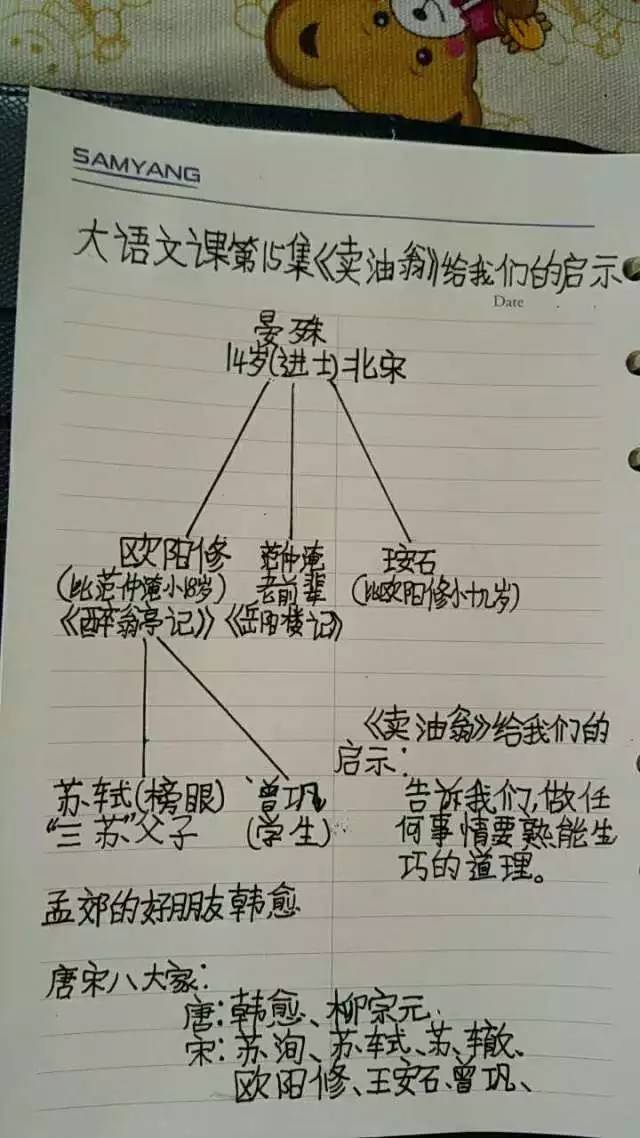 SAMYANG
大语文课第15集《卖油翁》给我们的启示
Date
晏殊
14岁(进士)北宋
欧阳修 范仲淹 王安石
(比范仲淹小18岁) 老前辈 (比欧阳修小十九岁)
《醉翁亭记》《岳阳楼记》
《卖油翁》给我们的
启示:
苏轼(榜眼) 曾巩
"三苏"父子 (学生)
告诉我们,做任
何事情要熟能生
巧的道理。
孟郊的好朋友韩愈
唐宋八大家:
唐:韩愈、柳宗元、
宋:苏洵、苏轼、苏辙、
欧阳修、王安石、曾巩、